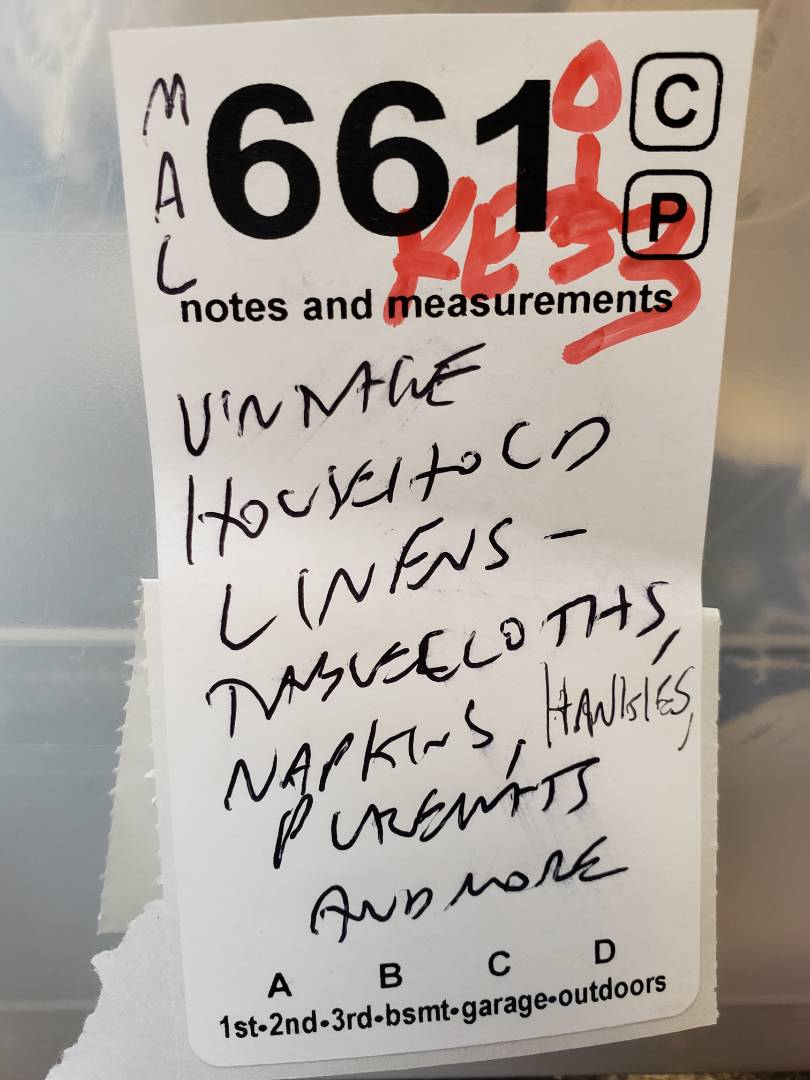 MAL
661
C
P
notes and measurements
VINTAGE
HOUSEHOLD
LINENS -
TABLECLOTHS,
NAPKINS, HANKIES,
PLACEMATS
AND MORE
A B C D
1st•2nd•3rd•bsmt•garage•outdoors